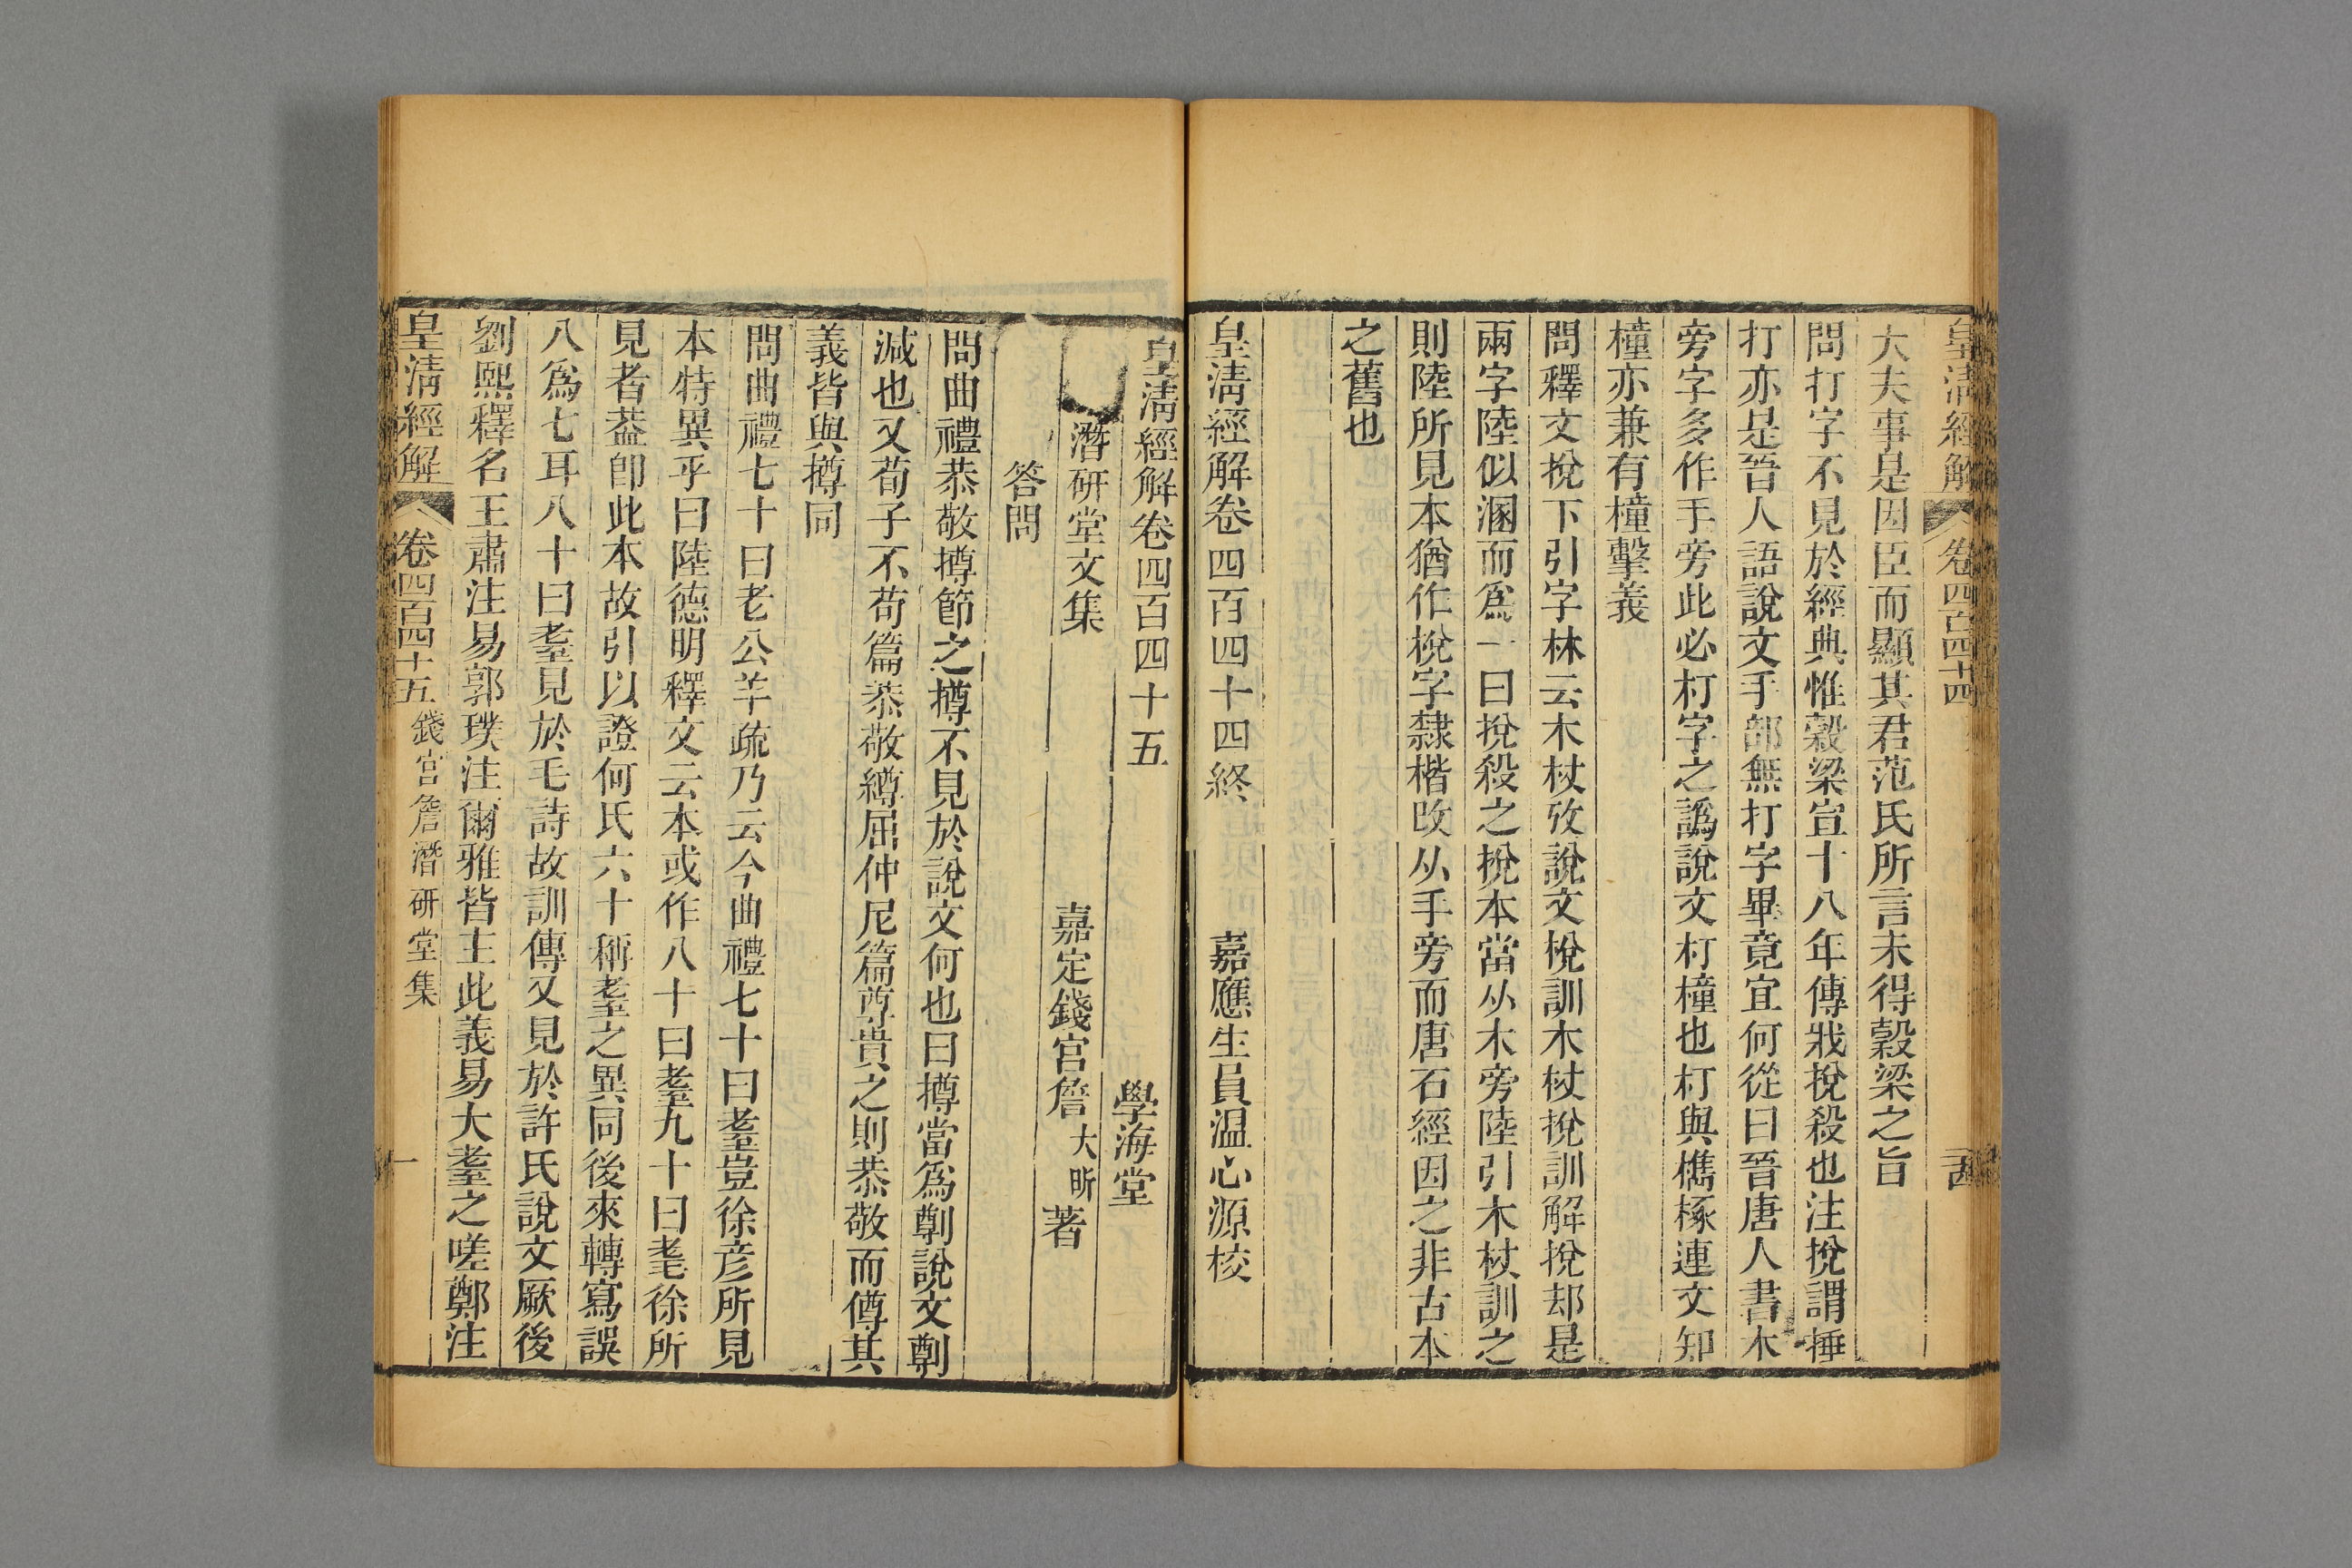 皇清經解 卷四百四十四 古
大夫事是因臣而顯其君范氏所言未得穀梁之旨
問打字不見於經典惟穀梁宣十八年傳戕捝殺也注捝謂捶
打亦是晉人語說文手部無打字畢竟宜何從曰晉唐人書木
旁字多作手旁此必朾字之譌說文朾橦也朾與檇椓連文知
橦亦兼有橦擊義
問釋文捝下引字林云木杖攷說文梲訓木杖捝訓解捝却是
兩字陸似溷而爲一曰捝殺之捝本當从木旁陸引木杖訓之
則陸所見本猶作梲字隸楷改从手旁而唐石經因之非古本
之舊也
皇清經解卷四百四十四終 嘉應生員温心源校
皇清經解卷四百四十五 學海堂
潛研堂文集 嘉定錢宮詹大昕著
答問
問曲禮恭敬撙節之撙不見於說文何也曰撙當爲剸說文剸
減也又荀子不苟篇恭敬繜屈仲尼篇尊貴之則恭敬而僔其
義皆與撙同
問曲禮七十曰老公羊疏乃云今曲禮七十曰耋豈徐彥所見
本特異乎曰陸德明釋文云本或作八十曰耋九十曰耄徐所
見者葢卽此本故引以證何氏六十稱耋之異同後來轉寫誤
八爲七耳八十曰耋見於毛詩故訓傳又見於許氏說文厥後
劉熙釋名王肅注易郭璞注爾雅皆主此義易大耋之嗟鄭注
皇清經解 卷四百四十五 錢宮詹潛研堂集 一